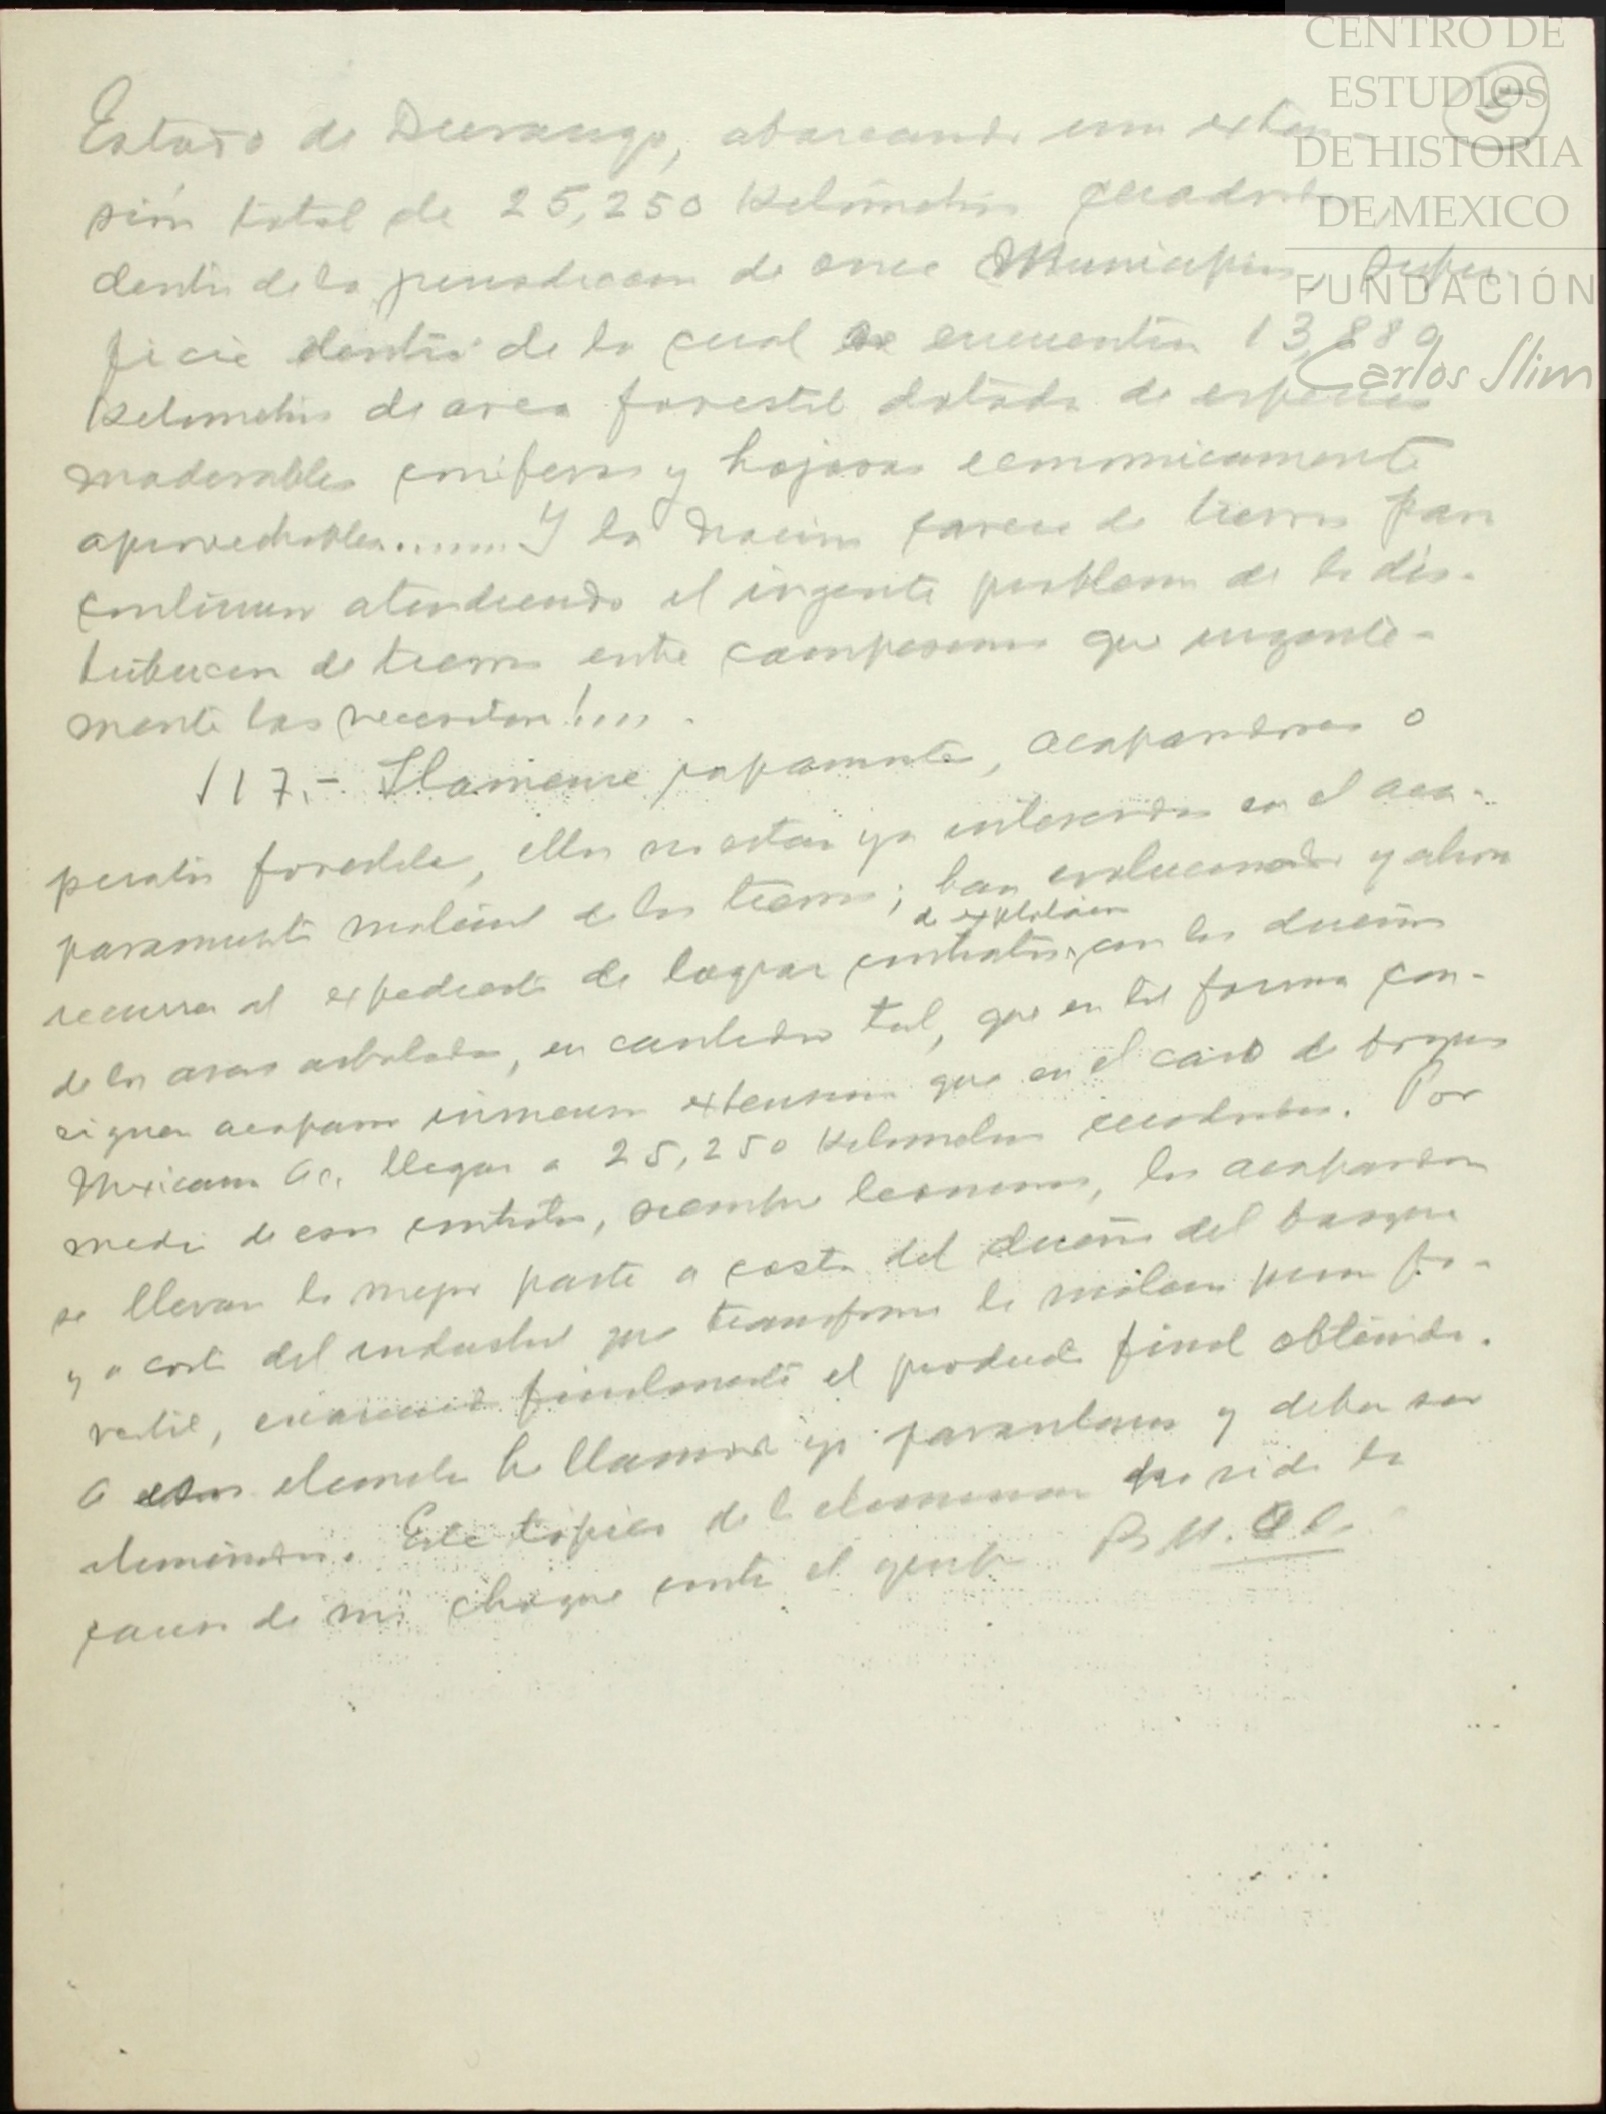 CENTRO DE
ESTUDIOS
DE HISTORIA
DE MEXICO
FUNDACIÓN
Carlos Slim
5
Estado de Durango, abarcando una exten-
sión total de 25,250 Kilómetros cuadrados,
dentro de la jurisdiccion de once Municipios, super-
ficie dentro de la cual se encuentran 13,889
Kilometros de area forestal dotada de especies
maderables coniferas y hojosas economicamente
aprovechables....... Y la Nacion carece de tierras para
continuar atendiendo el urgente problema de la dis-
tribucion de tierras entre campesinos que urgente-
mente las necesitan!....
117.- Llamense rapamontes, acaparadores o
piratas forestales, ellos no estan ya interesados en el aca-
paramiento material de las tierras; han evolucionado y ahora
recurren al expediente de lograr contratos de explotacion con los dueños
de las areas arboladas, en cantidad tal, que en tal forma con-
siguen acaparar inmensas extensiones que en el caso de Bosques
Mexicanos Ac. llegan a 25,250 Kilometros cuadrados. Por
medio de esos contratos, siempre leoninos, los acaparadores
se llevan la mejor parte a costa del dueño del bosque
y a costa del industrial que transforma la materia prima fo-
restal, encareciendo finalmente el producto final obtenido.
A esos elementos he llamado yo parasitarios y deben ser
eliminados. Este topico de la eliminacion ha sido la
causa de mi choque contra el grupo B. M. A. C.